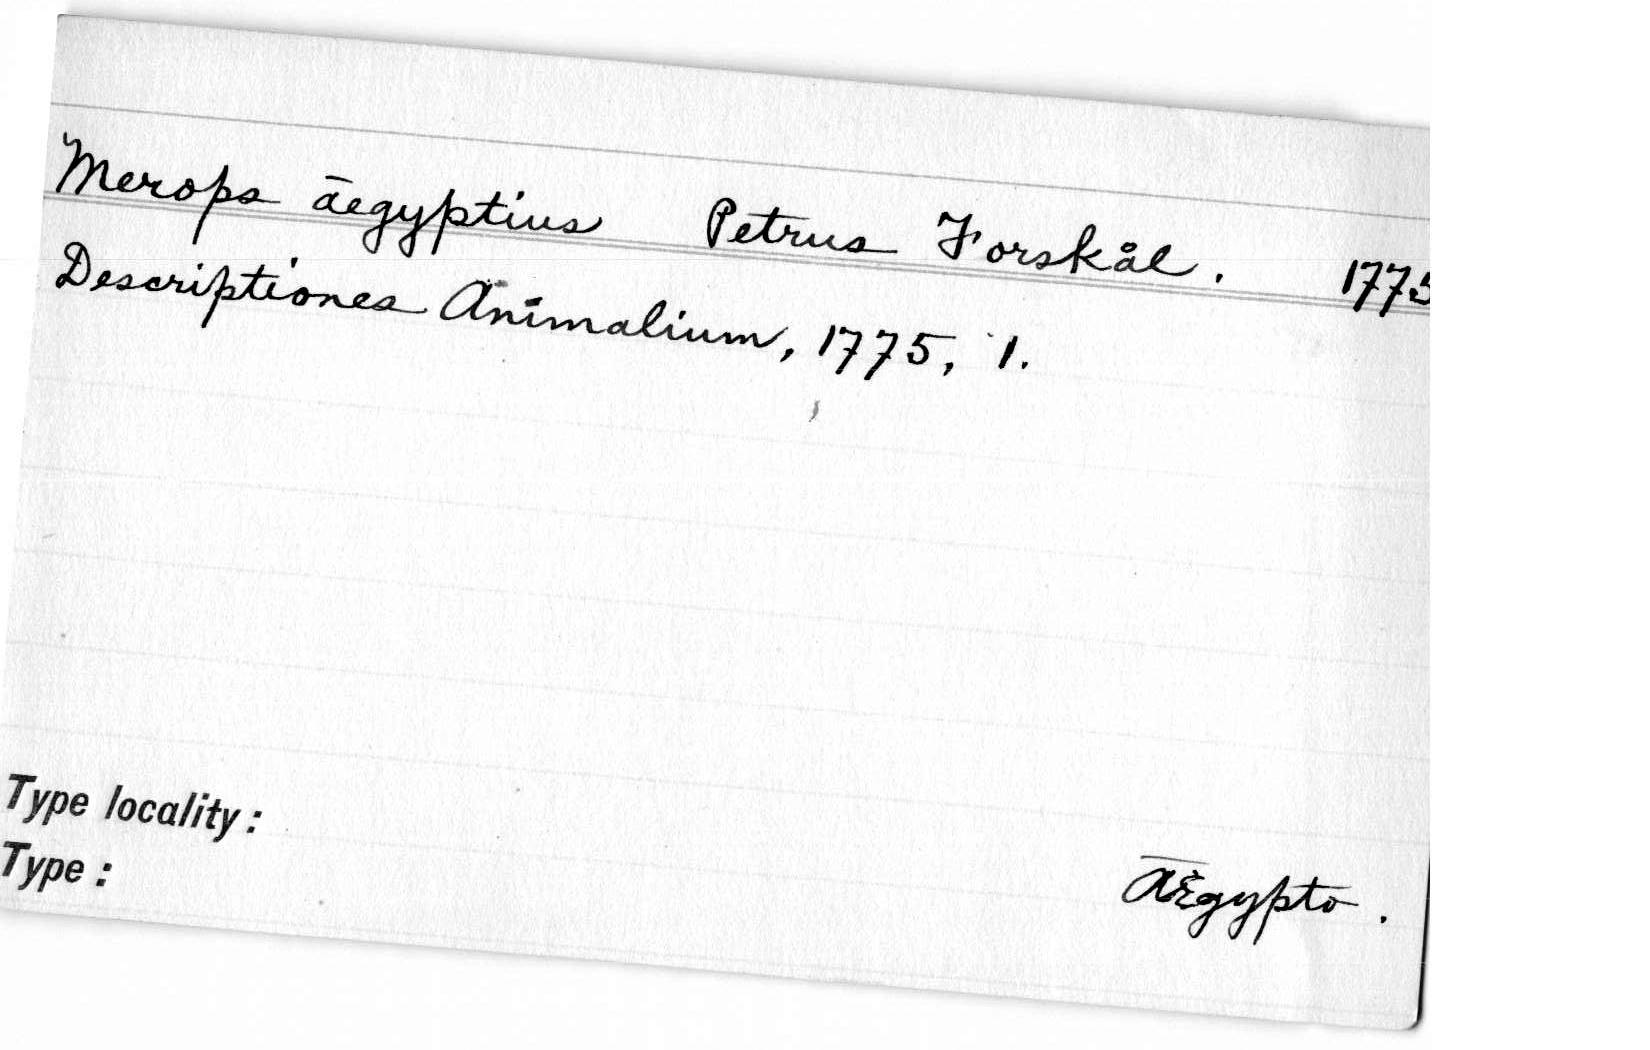 Merops āegyptius Petrus Forskål. 1775
Descriptiones Animalium, 1775, 1.
Type locality:
Type:
Ægypto.